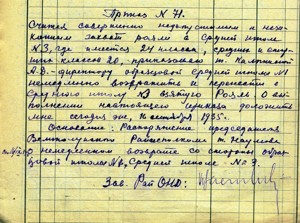 Приказ N 71.
Считая совершенно недопустимым и неза-
конным захват рояля в Средней школе
N3, где имеется 24 класса, средних и
классов 20, приказываю т.
А.Д. - директору образцовой средней школы N1
немедленно возвратить и перевезти в
Среднюю школу N3 взятую рояль, о вы-
полнении настоящего приказа доложить
мне сегодня же, 16 сентября 1935 г.
Основание: Распоряжение председателя
Райисполкома т. Наумова
о немедленном возврате со стороны образ-
цовой школы N1, Средней школе - N3.
Зав. РайОНО: